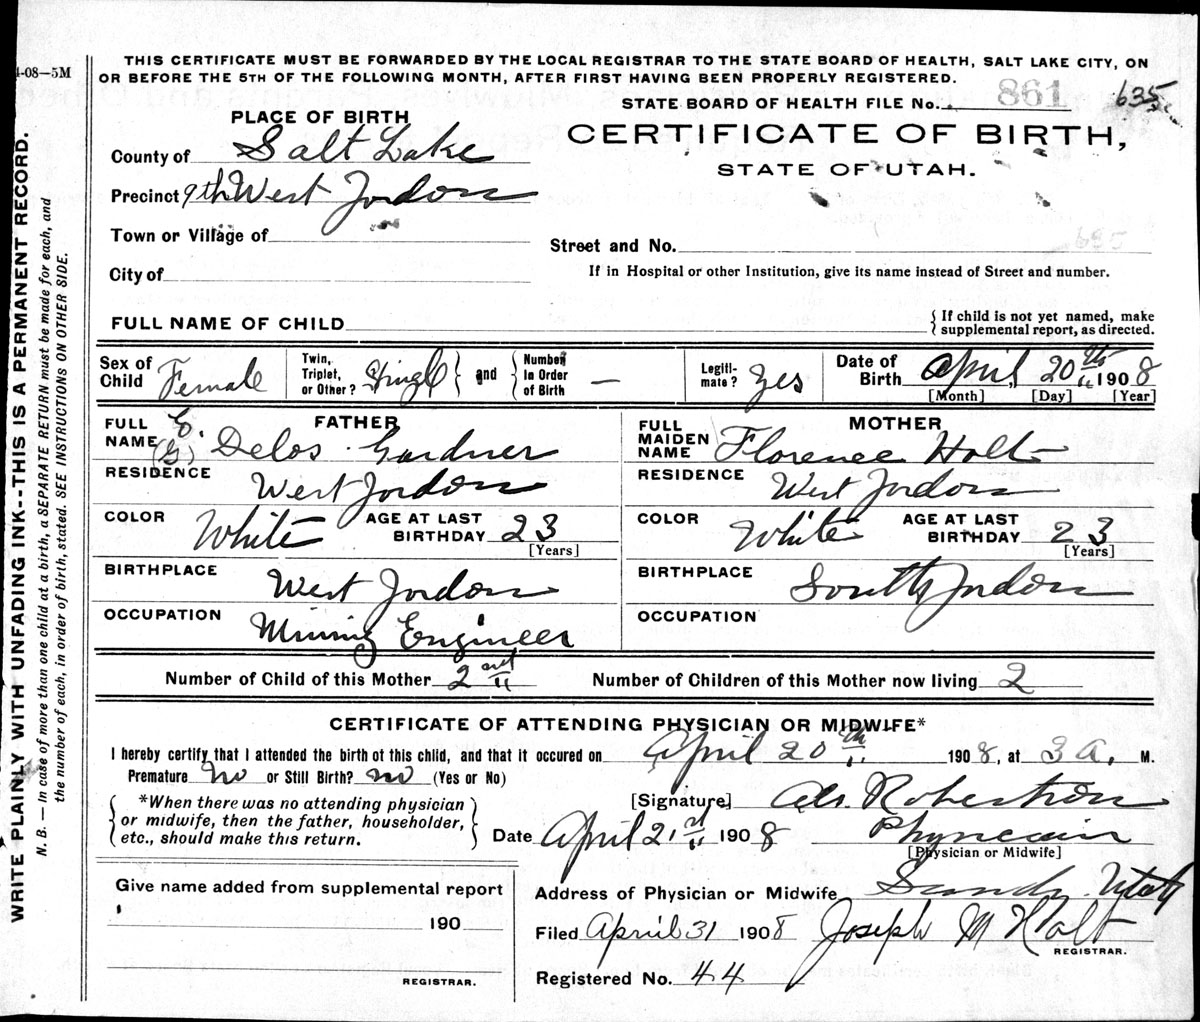 4-08—5M
THIS CERTIFICATE MUST BE FORWARDED BY THE LOCAL REGISTRAR TO THE STATE BOARD OF HEALTH, SALT LAKE CITY, ON
OR BEFORE THE 5TH OF THE FOLLOWING MONTH, AFTER FIRST HAVING BEEN PROPERLY REGISTERED.
STATE BOARD OF HEALTH FILE No. 861 635
PLACE OF BIRTH
CERTIFICATE OF BIRTH,
STATE OF UTAH.
County of Salt Lake
Precinct 9th West Jordon
Town or Village of
Street and No.
City of
If in Hospital or other Institution, give its name instead of Street and number.
FULL NAME OF CHILD
{ If child is not yet named, make
supplemental report, as directed.
Sex of Child Female
Twin, Triplet, or Other? Singl } and { Number in Order of Birth —
Legiti-mate? Yes
Date of Birth April 20th 1908
[Month] [Day] [Year]
FATHER
FULL NAME E. (G) Delos Gardner
RESIDENCE West Jordon
COLOR White AGE AT LAST BIRTHDAY 23
[Years]
BIRTHPLACE West Jordon
OCCUPATION Mining Engineer
MOTHER
FULL MAIDEN NAME Florence Holt
RESIDENCE West Jordon
COLOR White AGE AT LAST BIRTHDAY 23
[Years]
BIRTHPLACE South Jordon
OCCUPATION
Number of Child of this Mother 2nd Number of Children of this Mother now living 2
CERTIFICATE OF ATTENDING PHYSICIAN OR MIDWIFE*
I hereby certify that I attended the birth of this child, and that it occured on April 20th, 1908, at 3 A. M.
Premature no or Still Birth? no (Yes or No)
{ *When there was no attending physician
or midwife, then the father, householder,
etc., should make this return. }
[Signature] Robertson
Date April 21st 1908
[Physician or Midwife]
Give name added from supplemental report
190
REGISTRAR.
Address of Physician or Midwife Sandy Utah
Filed April 31 1908 Joseph M Holt
REGISTRAR.
Registered No. 44
WRITE PLAINLY WITH UNFADING INK--THIS IS A PERMANENT RECORD.
N. B. — In case of more than one child at a birth, a SEPARATE RETURN must be made for each, and
the number of each, in order of birth, stated. SEE INSTRUCTIONS ON OTHER SIDE.